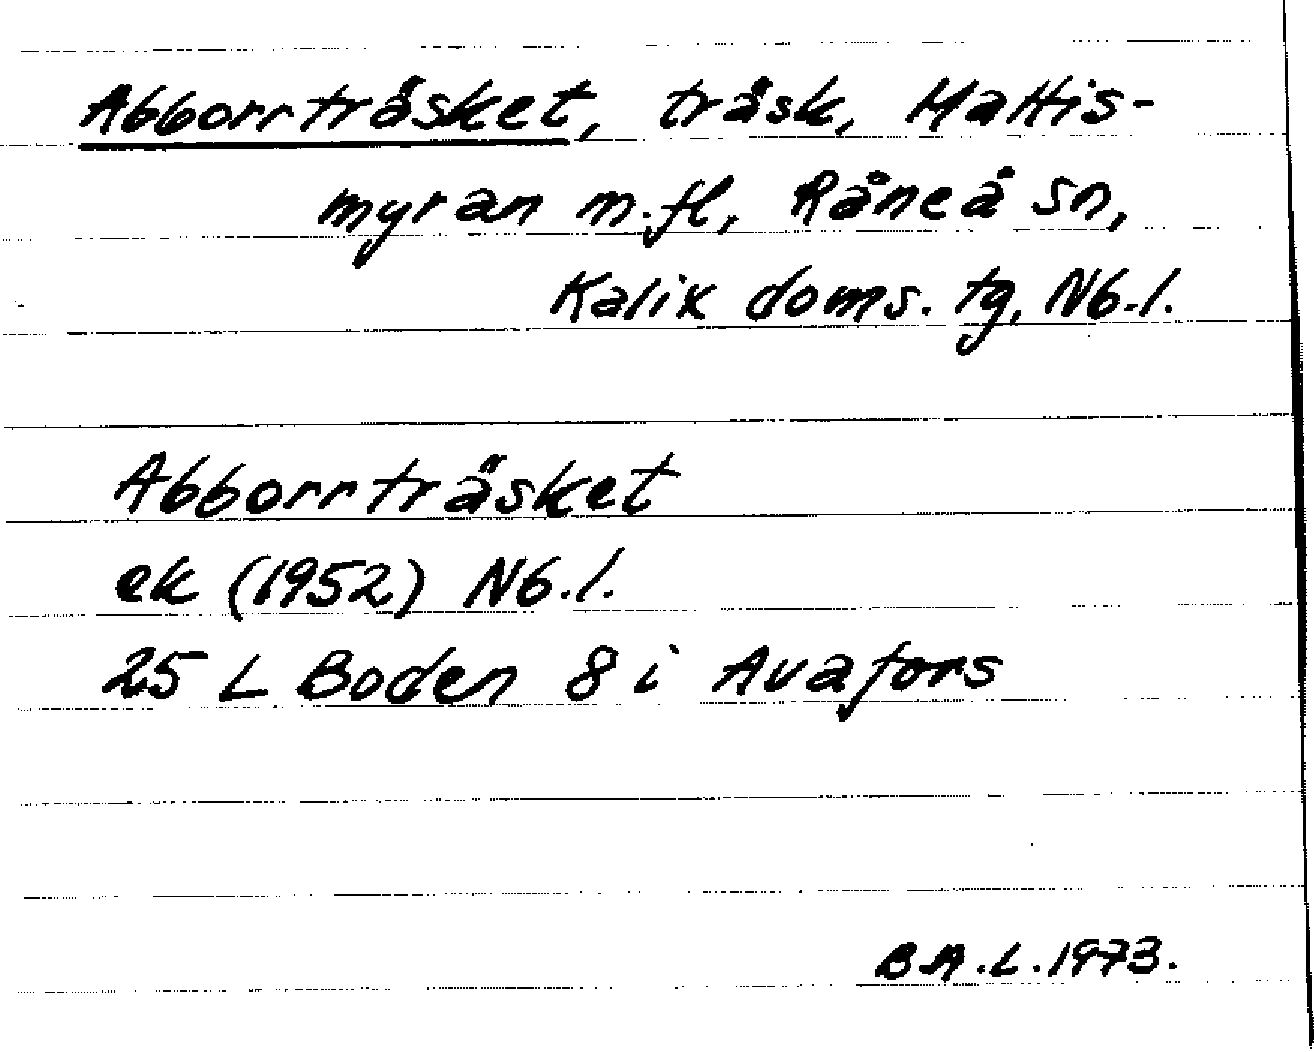 Abborrträsket, träsk, Mattis-
myran m.fl, Råneå sn,
Kalix doms. tg, Nb.l.
Abborrträsket
ek (1952) Nb.l.
25 L Boden 8 i Avafors
B.A.L. 1973.